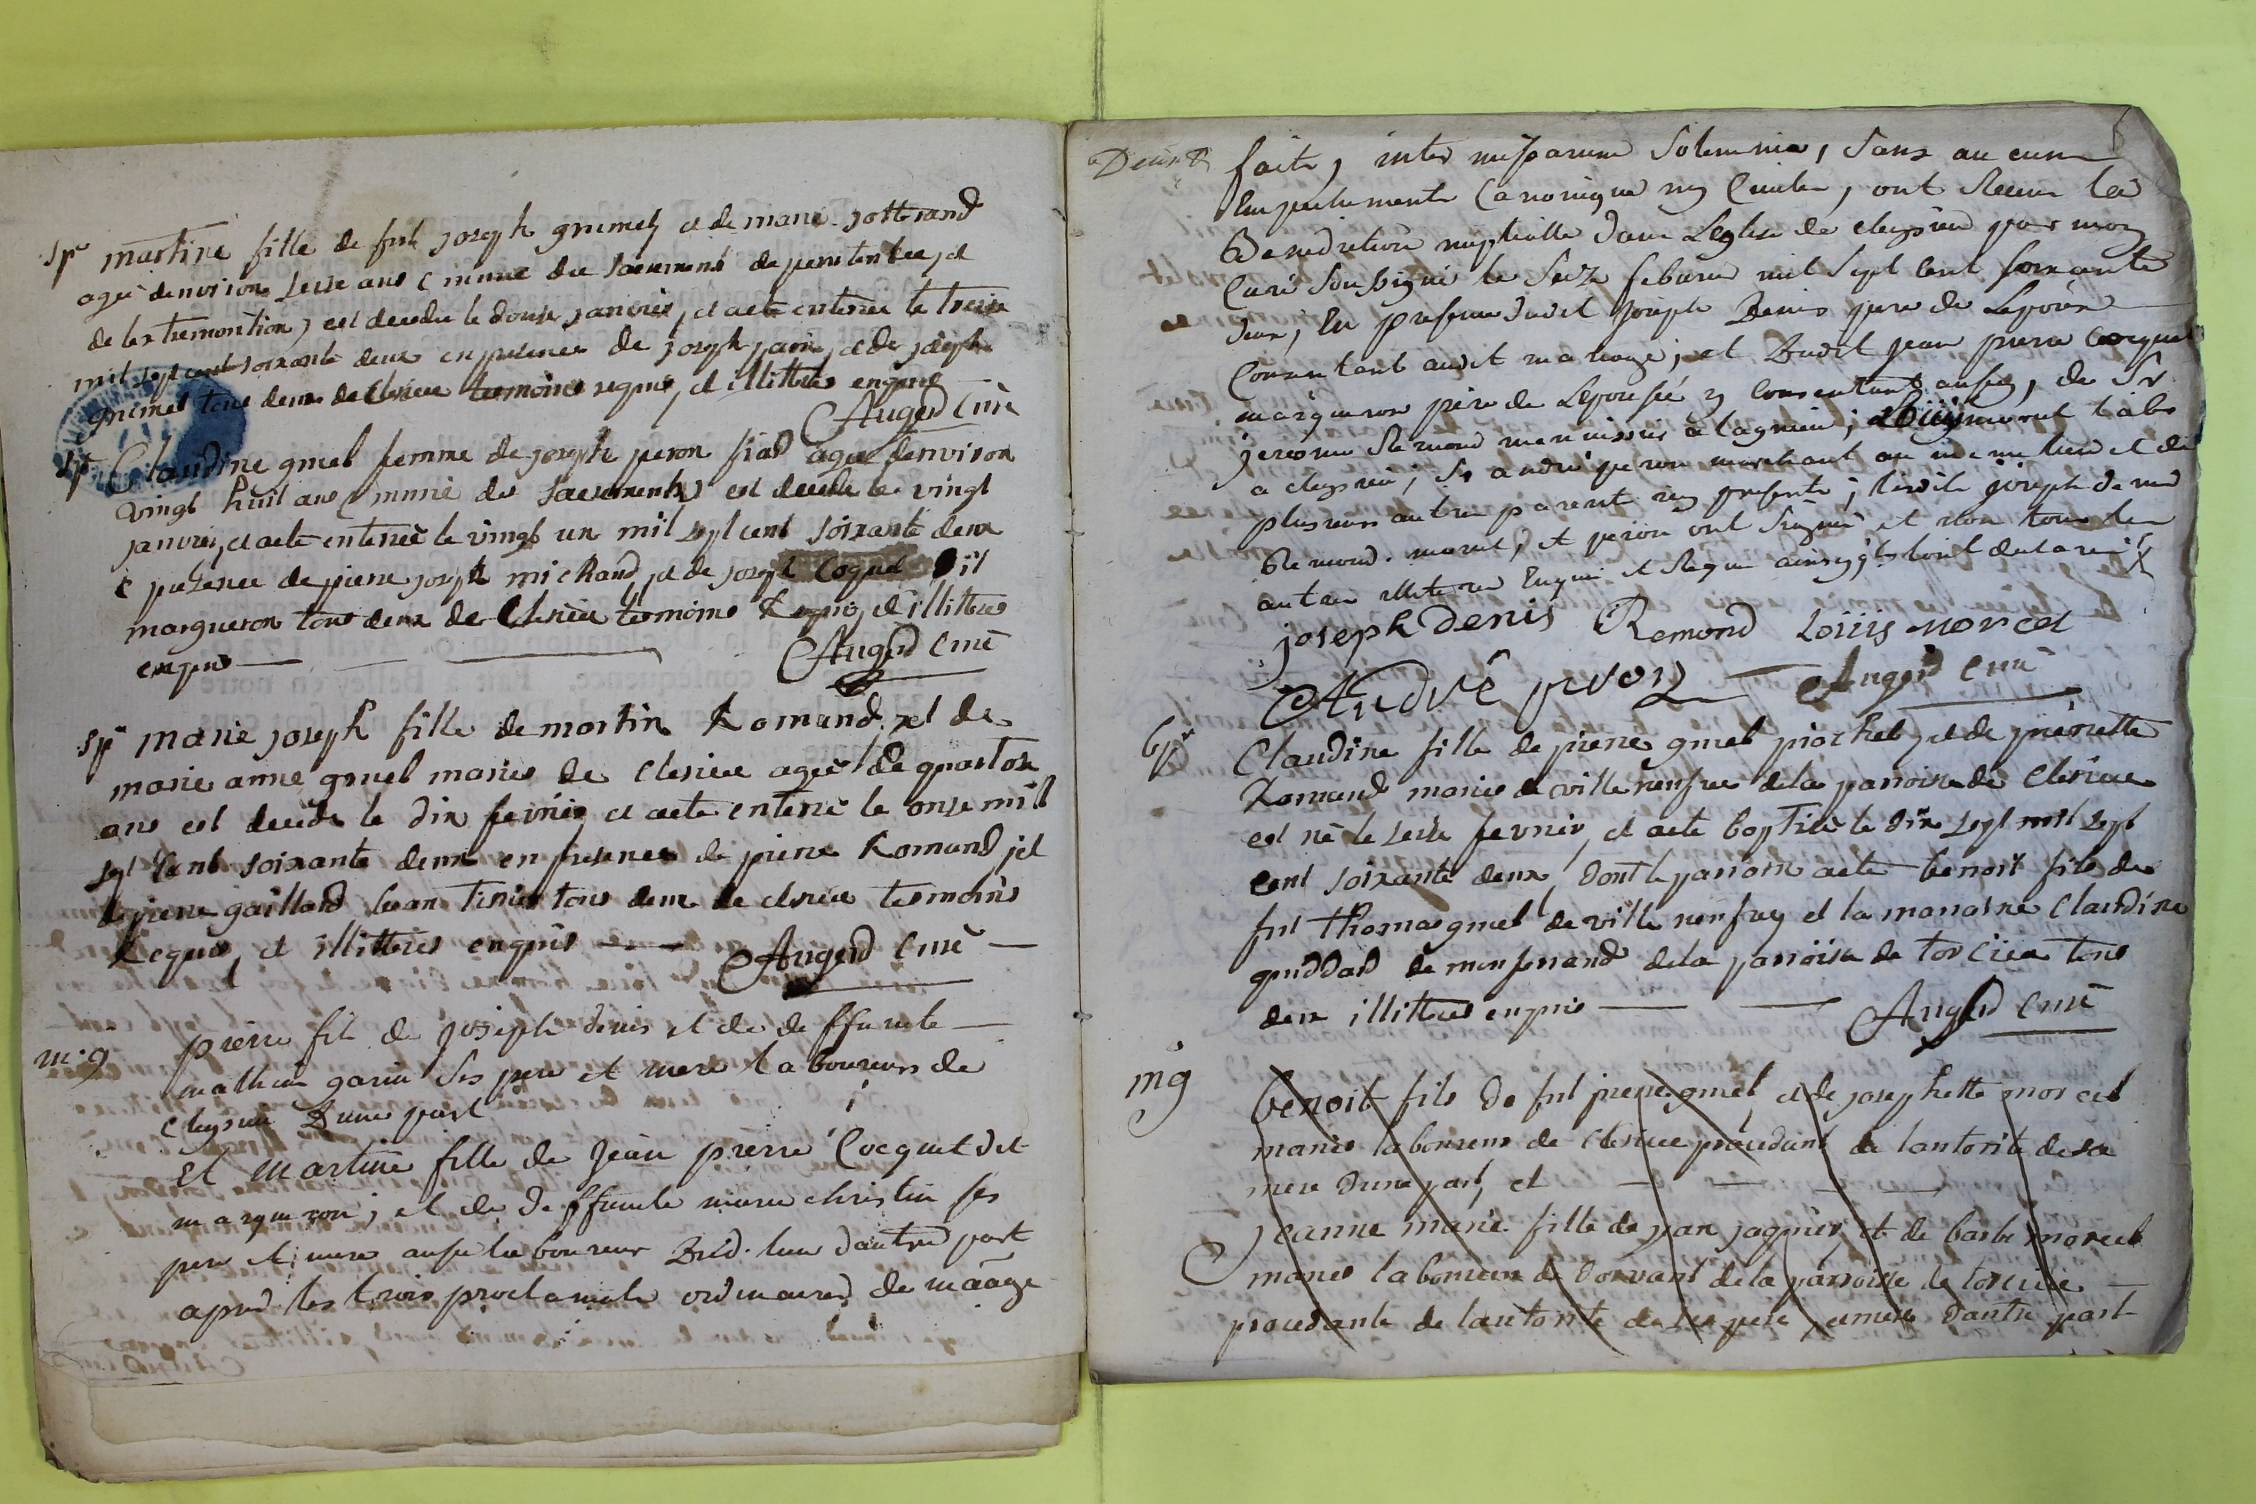 Sp^re martine fille de fut joseph grumel et de marie jotterand
ageè denviron seise ans munie du sacrement de penitentee, et
de lextremontion, est decedee le douse janvier, et aete enterreè le treise
mil sept cent soixante deux en presence de joseph et de joseph
grumel tous deux de Clesieu temoins requis, et illitterès enquis
Augerd Curè
Sp^re Claudine gruel femme de joseph peron agee denviron
vingt huit ans munie des sacrements est decedee le vingt
janvier, et aete enterreè le vingt un mil sept cent soixante deux
presence de pierre joseph michaud, et de joseph Coquet dit
margueron tous deux de Clesieu temoins Requis, et illitterès
enquis
Augerd Curè
Sp^re marie joseph fille de martin Romand, et de
marie anne gruel mariès de Clesieu ageè de quatorse
ans est decedè le dix fevrier, et aete enterrè le onse mil
sept Cent soixante deux en presence de pierre Romand, et
de pierre gaillard tous deux de clesieu temoins
Requis, et illitterès enquis
Augerd Curè
m·g pierre fils de joseph denis et de deffunte
garin ses pere et mere laboureurs de
Cleysieu Dune part
et martine fille de Jean pierre Cocquet dit
marqueron; et de deffunte marie christin ses
pere et mere aussy laboureur dud. lieu dautre part
apres les trois proclamats ordinaires de mãage
Denis & faite, inter missarum solemnia, sans aucun
Empechements Canonique ny Civiles, ont Receu la
Benediction nuptialle dans Leglise de cleysieu par moy
Curé soussigné le seize febvrier mil sept Cent soixante
deux, En presence dudit joseph Denis pere de Lepoux
Consentant audit mariage; et dudit jean pierre Cocquet
marqueron pere de Lepousée y Consentant aussy, de Sr
jerome Remond menuissier a lagnieu; Louis
a cleysieu; Sr andré peron marchant au meme lieu et de
plusieurs autres parents presents; lesdits joseph denis
Remond. morcet, et peron ont signé et non tous les
autres illiterés Enquis et Requis ainsy qu'ils ont declaré
joseph Denis Remond Loüis morcel
Andrê peron Augerd Curè
bp^re Claudine fille de pierre gruel piochet, et de pierrette
Romand mariès de ville renfree dela parroise de Clesieu
est nè le seise fevrier, et aete baptisè le dix sept mil sept
cent soixante deux, dont le parroin aete benoit fils de
fut thomas gruel de ville renfrey et la marraine Claudine
de monferrand dela parroisse de torcieu tous
deux illitterès enquis
Augerd Curè
mg benoit fils de fut pierre gruel, et de josephette morcel
mariès laboureurs de Clesieu procedant de lautorité de sa
mere dune part, et
jeanne marie fille de jean jagnier, et de barbe morcel
mariès laboureurs de Dorvant dela parroisse de torcieu
procedante de lautorité de ses pere, et mere dautre part